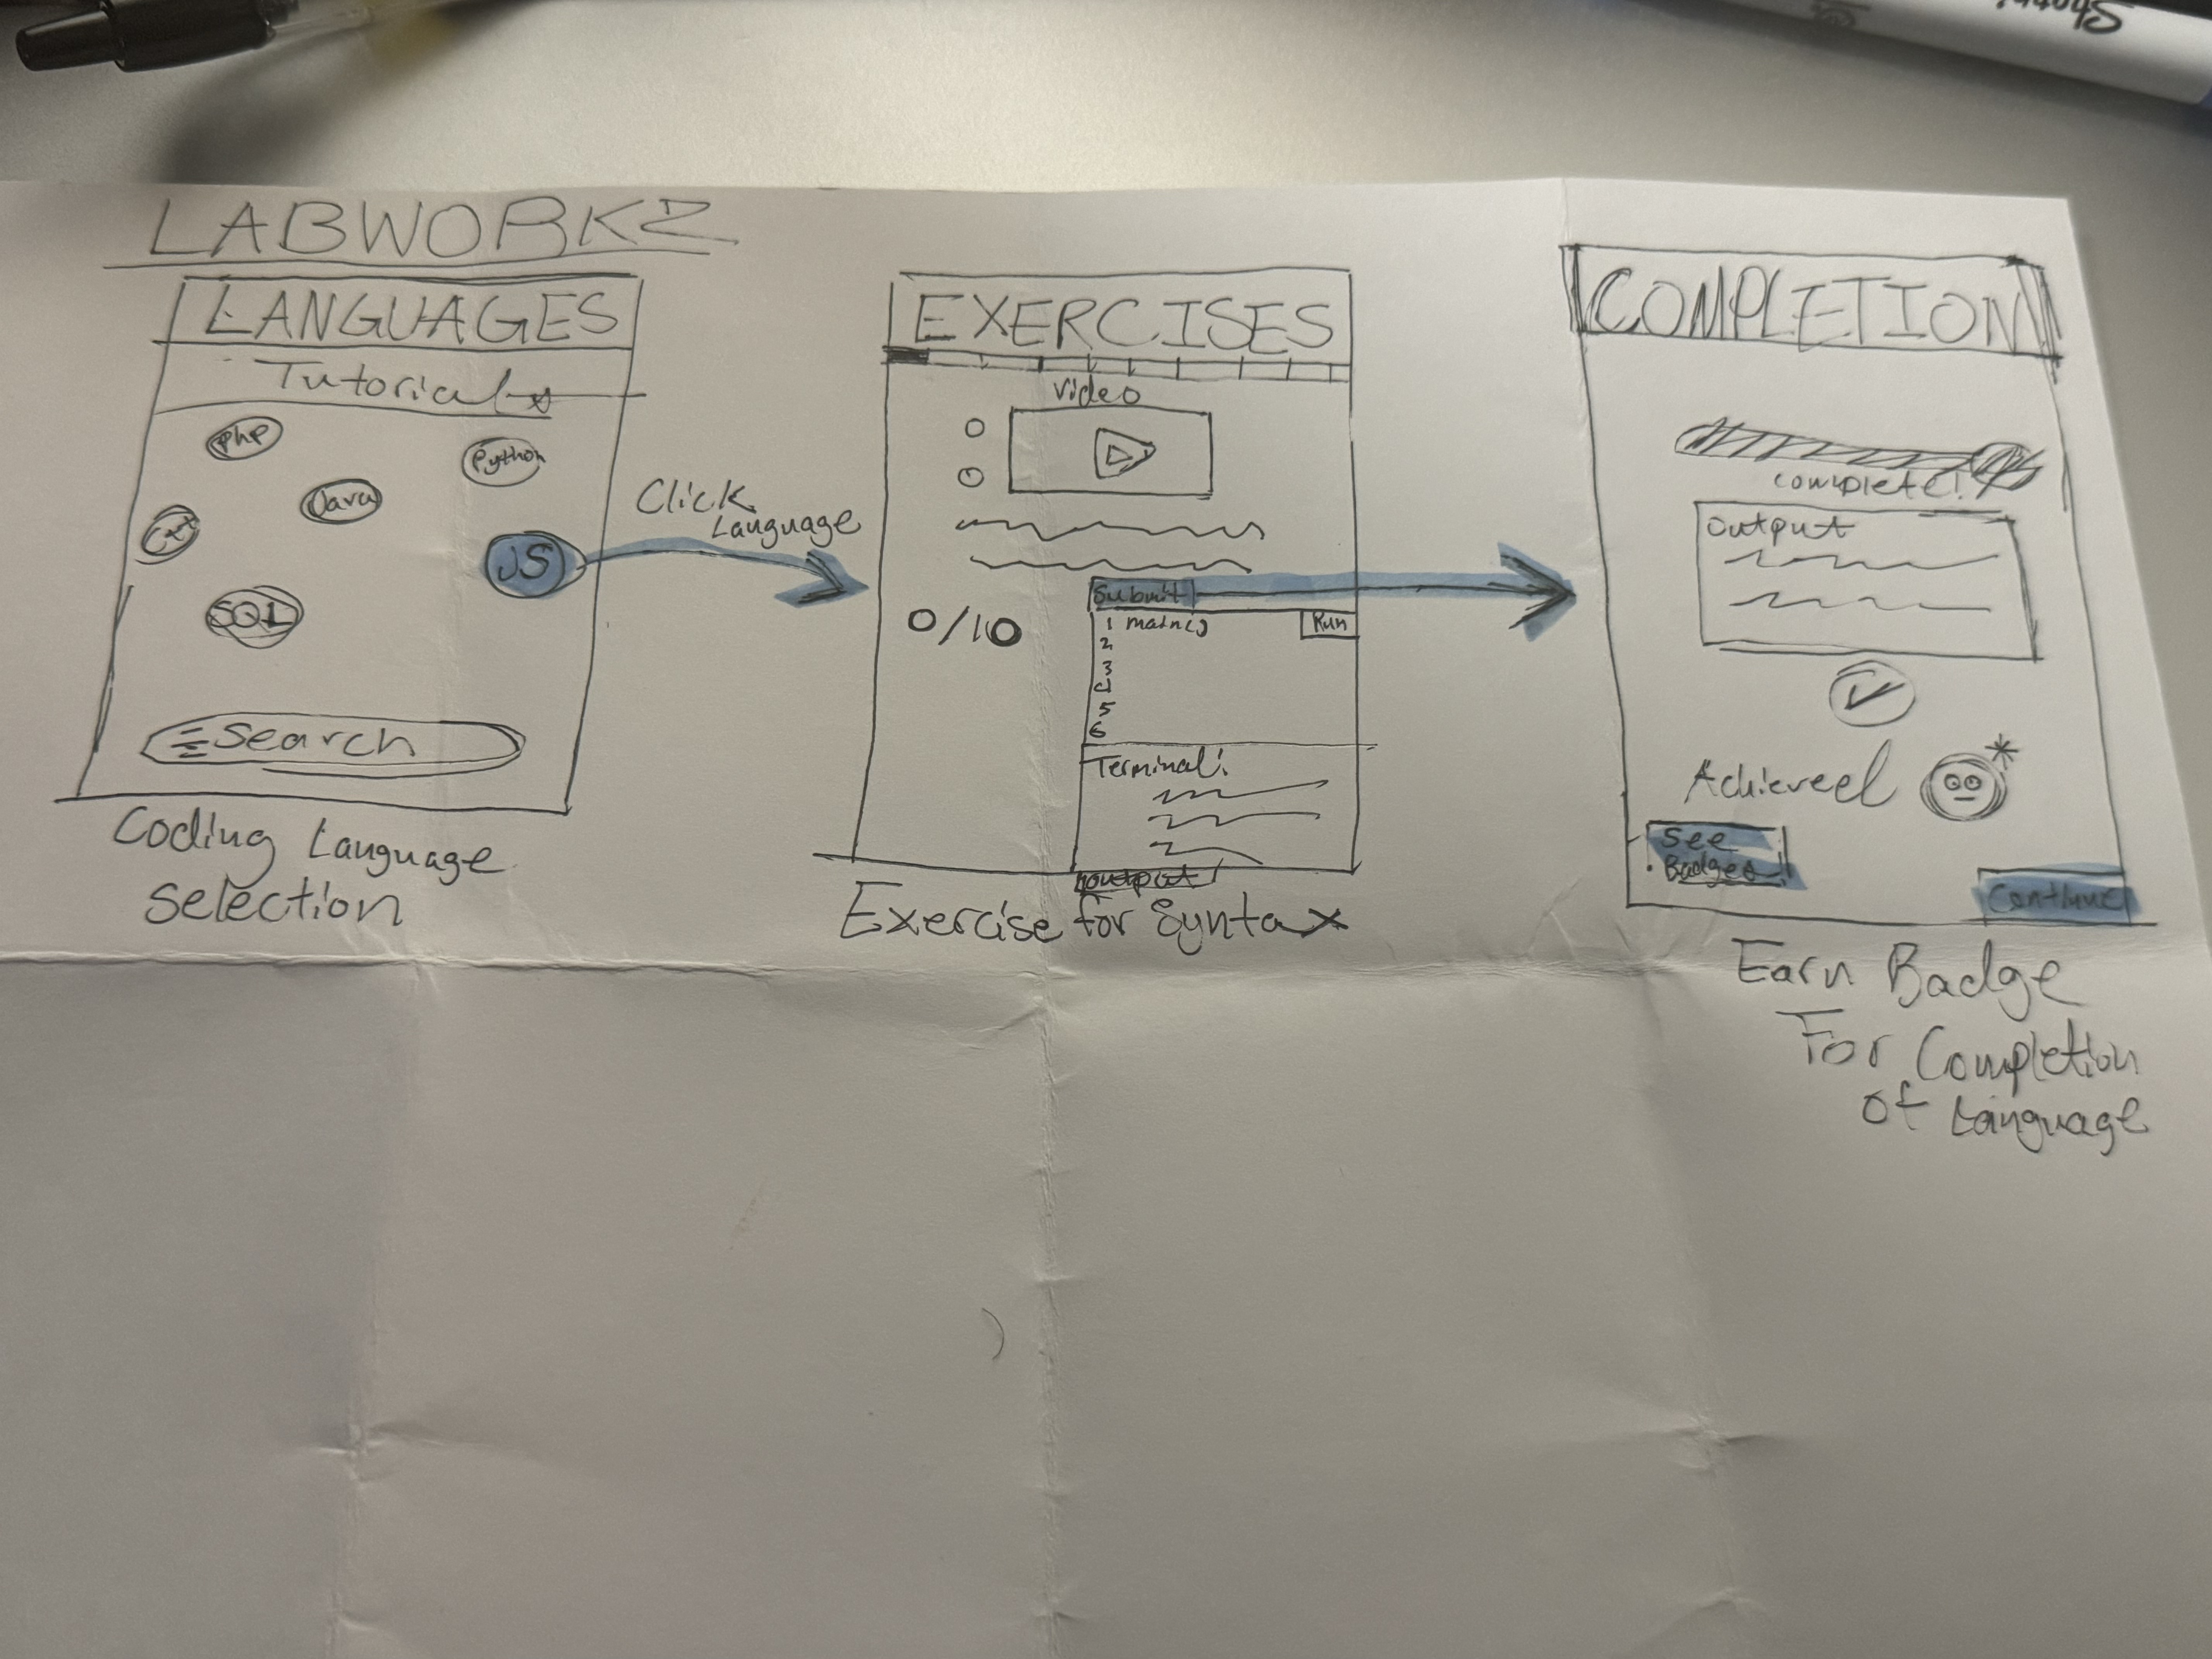 LABWORKZ
LANGUAGES
Tutorial
php
Python
Java
C++
JS
SQL
Search
Coding Language
Selection
Click
Language
EXERCISES
Video
Submit
0/10
1 main()
Run
2
3
4
5
6
Terminal:
output
Exercise for Syntax
COMPLETION
complete!
output
Achieved
See
Badges!
Continue
Earn Badge
For Completion
of Language